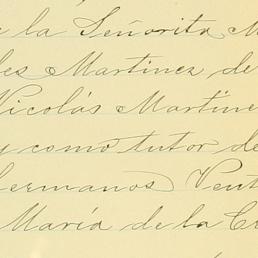 la Señorita M
les Martinez de
Nicolás Martine
y como tutor de
hermanos Vent
María de la Cr